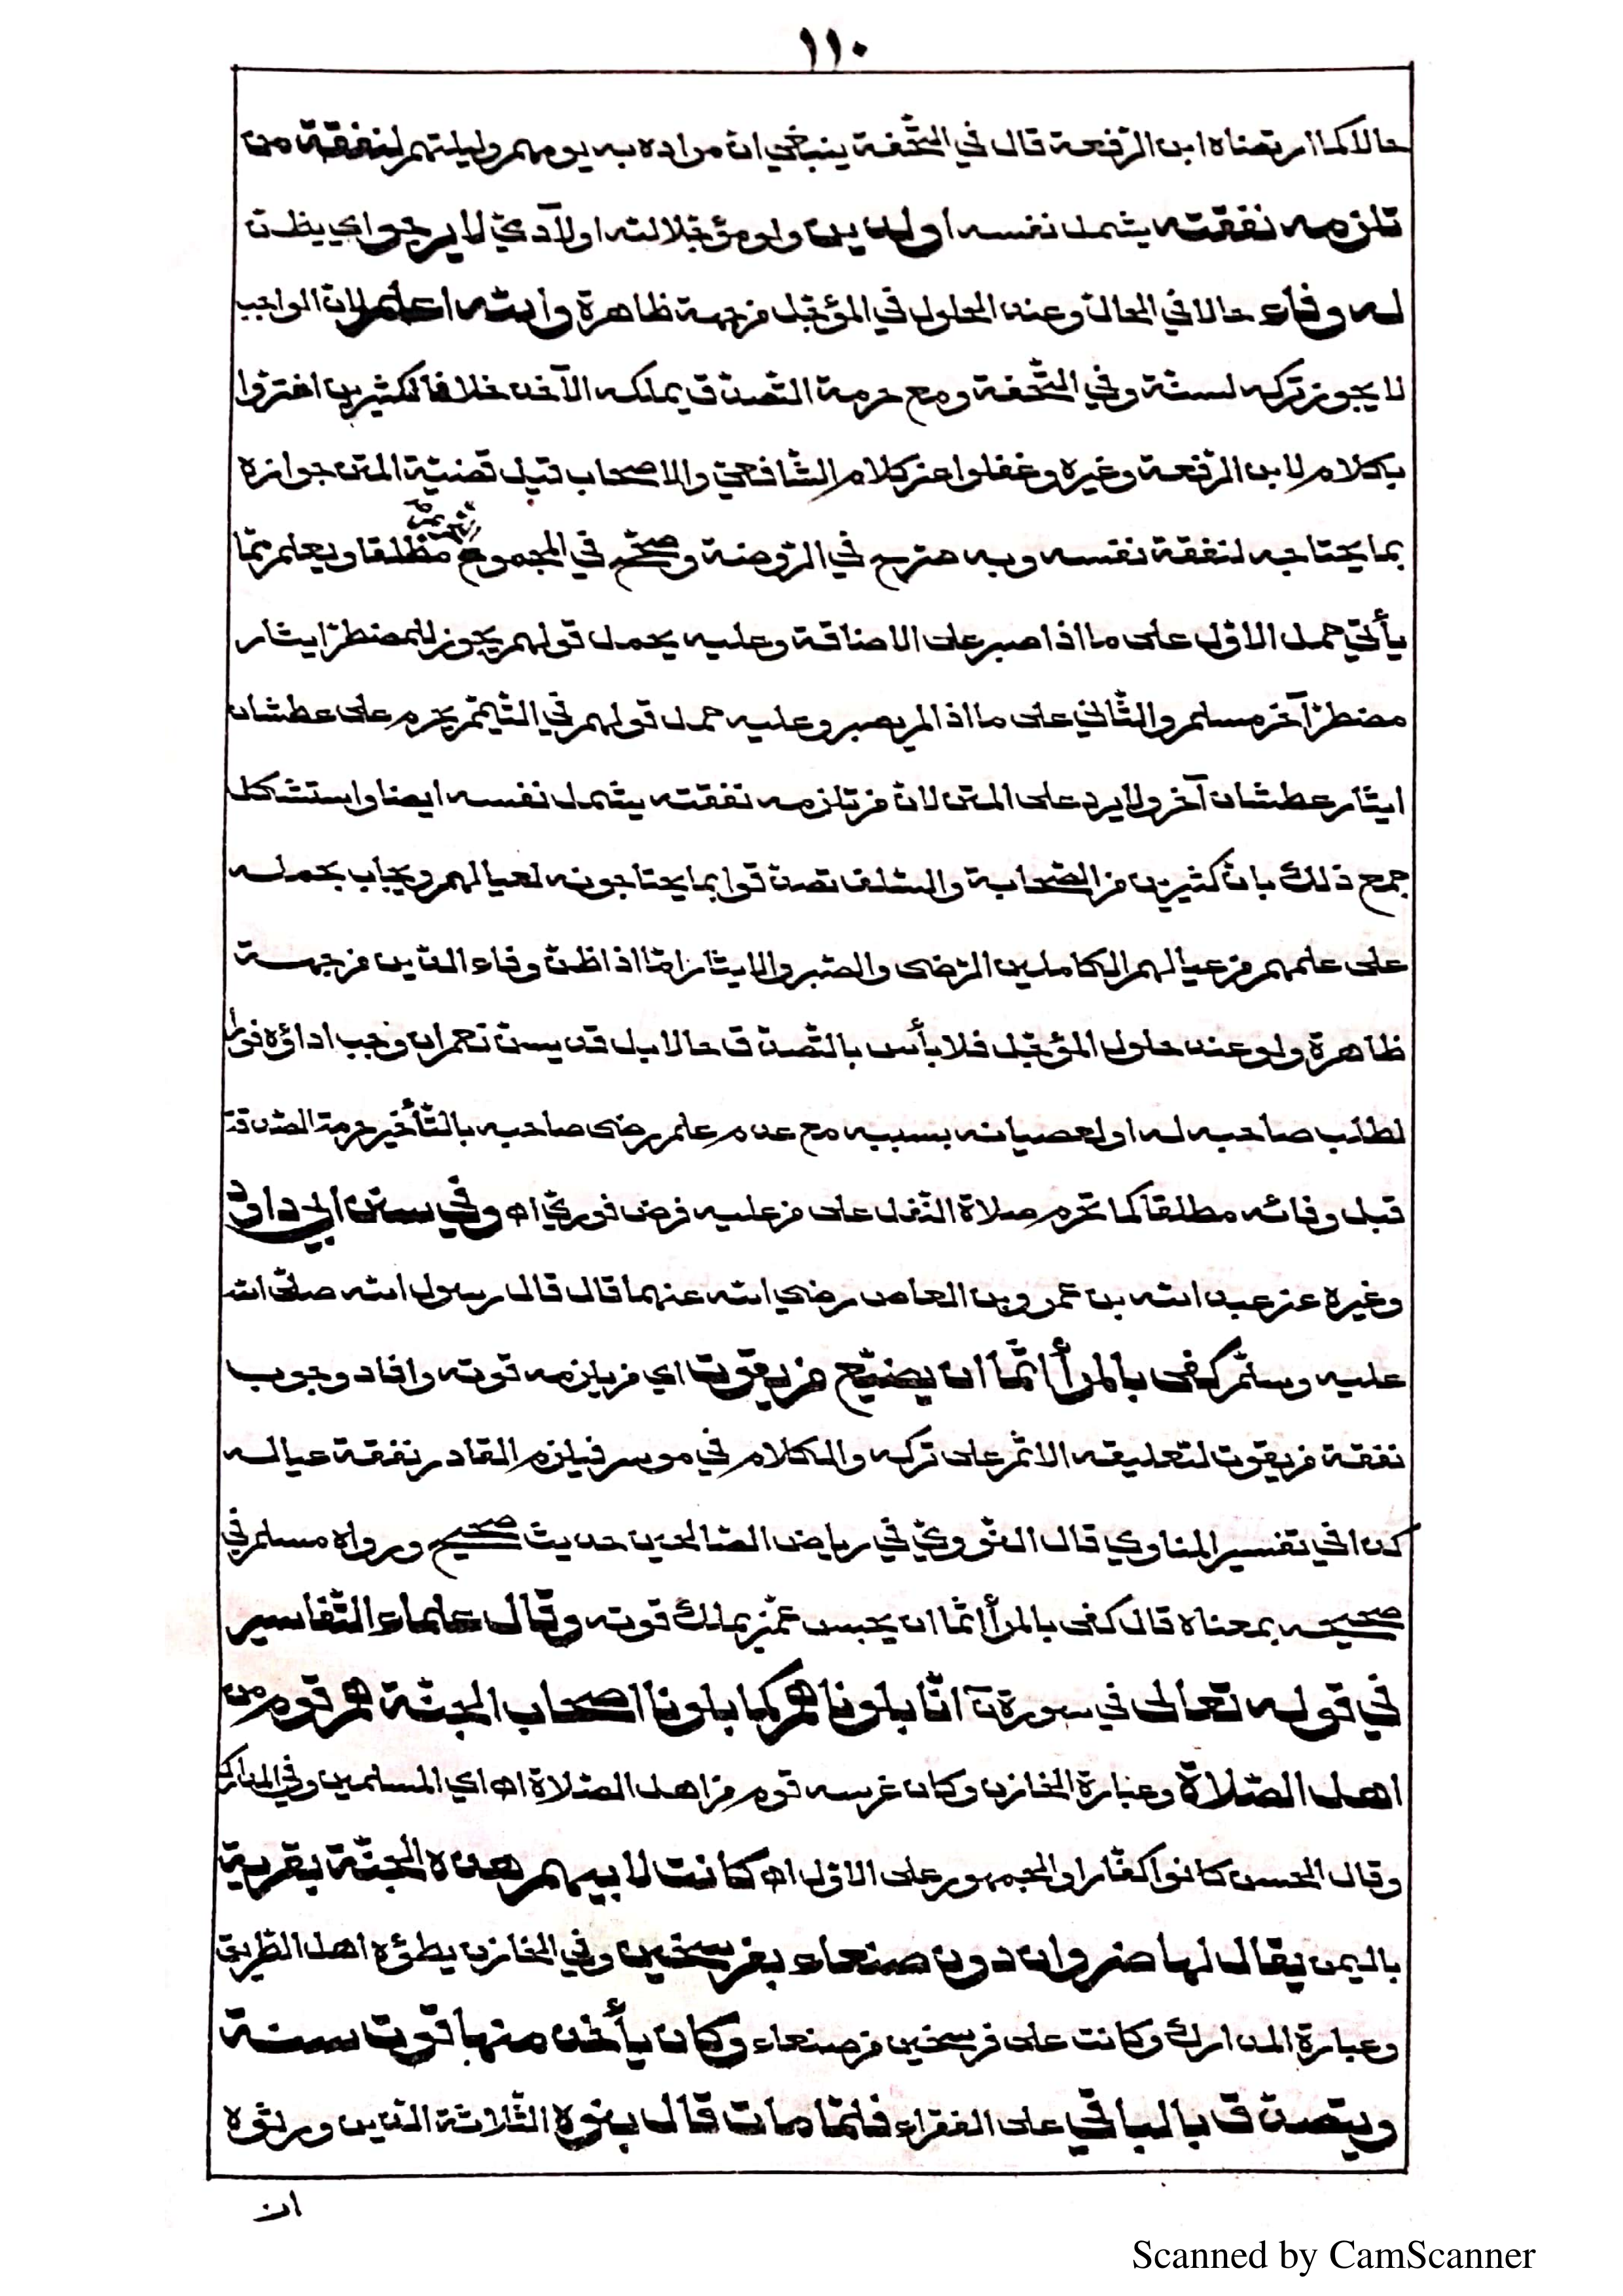 ١١٠
حالا كما ارتضاه ابن الرّفعة قال في التّحفة ينبغي انّ مراده به يومهم وليلتهم لنفقة من
تلزمه نفقته يشمل نفسه او لدين ولو مؤجّلا لله او لآدميّ لا يرجو اي يظنّ
له وفاء حالا في الحالّ وعند الحلول في المؤجّل من جهة ظاهرة والله اعلم لانّ الواجب
لا يجوز تركه لسنّة وفي التّحفة ومع حرمة التّصدّق يملكه الآخذ خلافا لكثيرين اغترّوا
بكلام لابن الرّفعة وغيره وغفلوا عن كلام الشّافعيّ والاصحاب قيل قضيّة المتن جوازه
بما يحتاجه لنفقة نفسه وبه صرّح في الرّوضة وصحّح في المجموع التّحريم مطلقا ويعلم ممّا
يأتي حمل الاوّل على ما اذا صبر على الاضاقة وعليه يحمل قولهم يجوز للمضطرّ ايثار
مضطرّ آخر مسلم والثّاني على ما اذا لم يصبر وعليه حمل قولهم في التّيمّم يحرم على عطشان
ايثار عطشان آخر ولا يرد على المتن لانّ من تلزمه نفقته يشمل نفسه ايضا واستشكل
جمع ذلك بانّ كثيرين من الصّحابة والسّلف تصدّقوا بما يحتاجونه لعيالهم ويجاب بحمله
على علمهم من عيالهم الكاملين الرّضى والصّبر والايثار امّا اذا ظنّ وفاء الدّين من جهة
ظاهرة ولو عند حلول المؤجّل فلا بأس بالتّصدّق حالا بل قد يسنّ نعم ان وجب اداؤه فورا
لطلب صاحبه له او لعصيانه بسببه مع عدم علم رضى صاحبه بالتّأخير حرمة الصّدقة
قبل وفائه مطلقا كما تحرم صلاة النّفل على من عليه فرض فوريّ اه وفي سنن ابي داود
وغيره عن عبد الله بن عمرو بن العاص رضي الله عنهما قال قال رسول الله صلّى الله
عليه وسلّم كفى بالمرأ اثما ان يضيّع من يقوت اي من يلزمه قوته وافاد وجوب
نفقة من يقوت لتعليقه الاثم على تركه والكلام في موسر فيلزم القادر نفقة عياله
كذا في تفسير المناوي قال النّوويّ في رياض الصّالحين حديث صحيح ورواه مسلم في
صحيحه بمعناه قال كفى بالمرأ اثما ان يحبس عمّن يملك قوته وقال علماء التّفاسير
في قوله تعالى في سورة نٓ انّا بلوناهم كما بلونا اصحاب الجنّة هم قوم من
اهل الصّلاة وعبارة الخازن وكان غرسه قوم من اهل الصّلاة اه اي المسلمين وفي المدارك
وقال الحسن كانوا كفّارا والجمهور على الاوّل اه كانت لابيهم هذه الجنّة بقرية
باليمن يقال لها ضروان دون صنعاء بفرسخين وفي الخازن يطؤه اهل الطّريق
وعبارة المدارك وكانت على فرسخين من صنعاء وكان يأخذ منها قوت سنة
ويتصدّق بالباقي على الفقراء فلمّا مات قال بنوه الثّلاثة الّذين ورثوه
ان
Scanned by CamScanner